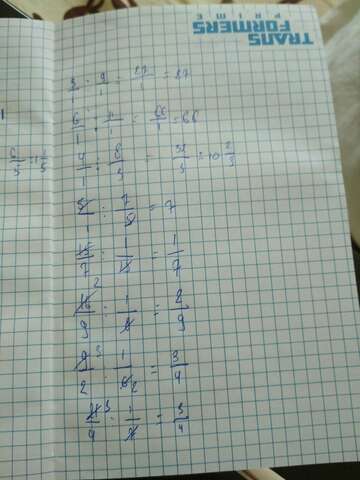 TRANS
FORMERS
PRIME
3/1 : 9/1 = 27/1 = 27
6/1 : 11/1 = 66/1 = 66
4/1 : 8/3 = 32/3 = 10 2/3
5/1 : 7/5 = 7
15/7 : 1/15 = 1/7
16/9 : 1/8 = 2/9
9/2 : 1/6 = 3/4
21/4 : 1/7 = 3/4